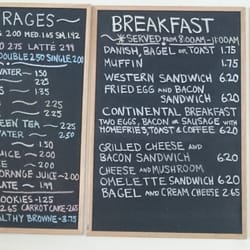 RAGES
2.00 MED. 1.65 SM. 1.42
2.25 LATTE 2.99
DOUBLE 2.50 SINGLE 2.00
WATER — 1.50
2.25
2.25
2.25
GREEN TEA ~ 2.25
WATER 2.50
JUICE — 2.00
ORANGE JUICE — 2.00
LATE — 1.99
COOKIES — 1.25
2.65 CARROT CAKE — 2.65
HEALTHY BROWNIE — 3.75
BREAKFAST
~ *SERVED FROM 8:00AM - 11:00AM
DANISH, BAGEL OR TOAST 1.75
MUFFIN 1.75
WESTERN SANDWICH 6.20
FRIED EGG AND BACON
SANDWICH 6.20
CONTINENTAL BREAKFAST
TWO EGGS, BACON OR SAUSAGE WITH
HOMEFRIES, TOAST & COFFEE 6.20
GRILLED CHEESE AND
BACON SANDWICH 6.20
CHEESE AND MUSHROOM
OMELETTE SANDWICH 6.20
BAGEL AND CREAM CHEESE 2.65